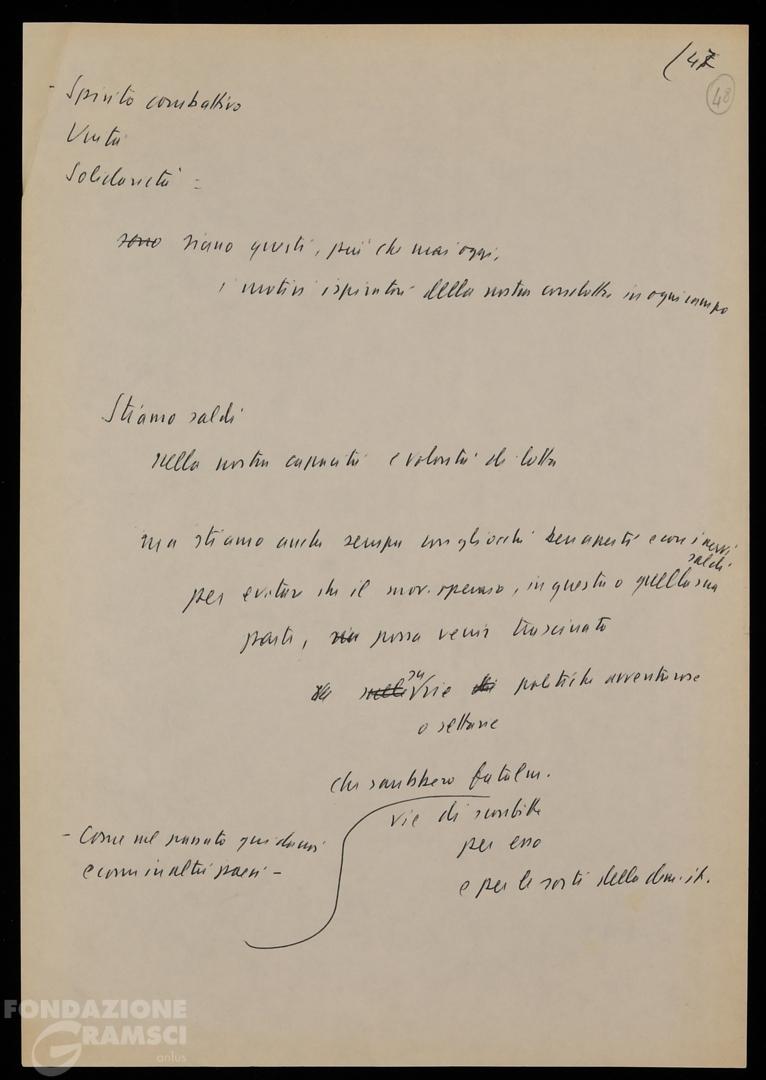 (47
48
- Spirito combattivo
Unità
Solidarietà =
sono siano questi, più che mai oggi,
i motivi ispiratori della nostra condotta in ogni campo
Stiamo saldi
nella nostra capacità e volontà di lotta
ma stiamo anche sempre con gli occhi ben aperti e con i nervi
saldi
per evitare che il mov. operaio, in questa o quella sua
parte, sia possa venir trascinato
su
vie politiche avventurose
o settarie
che sarebbero fatalm.
vie di sconfitte
per esso
e per le sorti della dem. it.
- Come nel passato qui da noi
e come in altri paesi -
FONDAZIONE
GRAMSCI
onlus